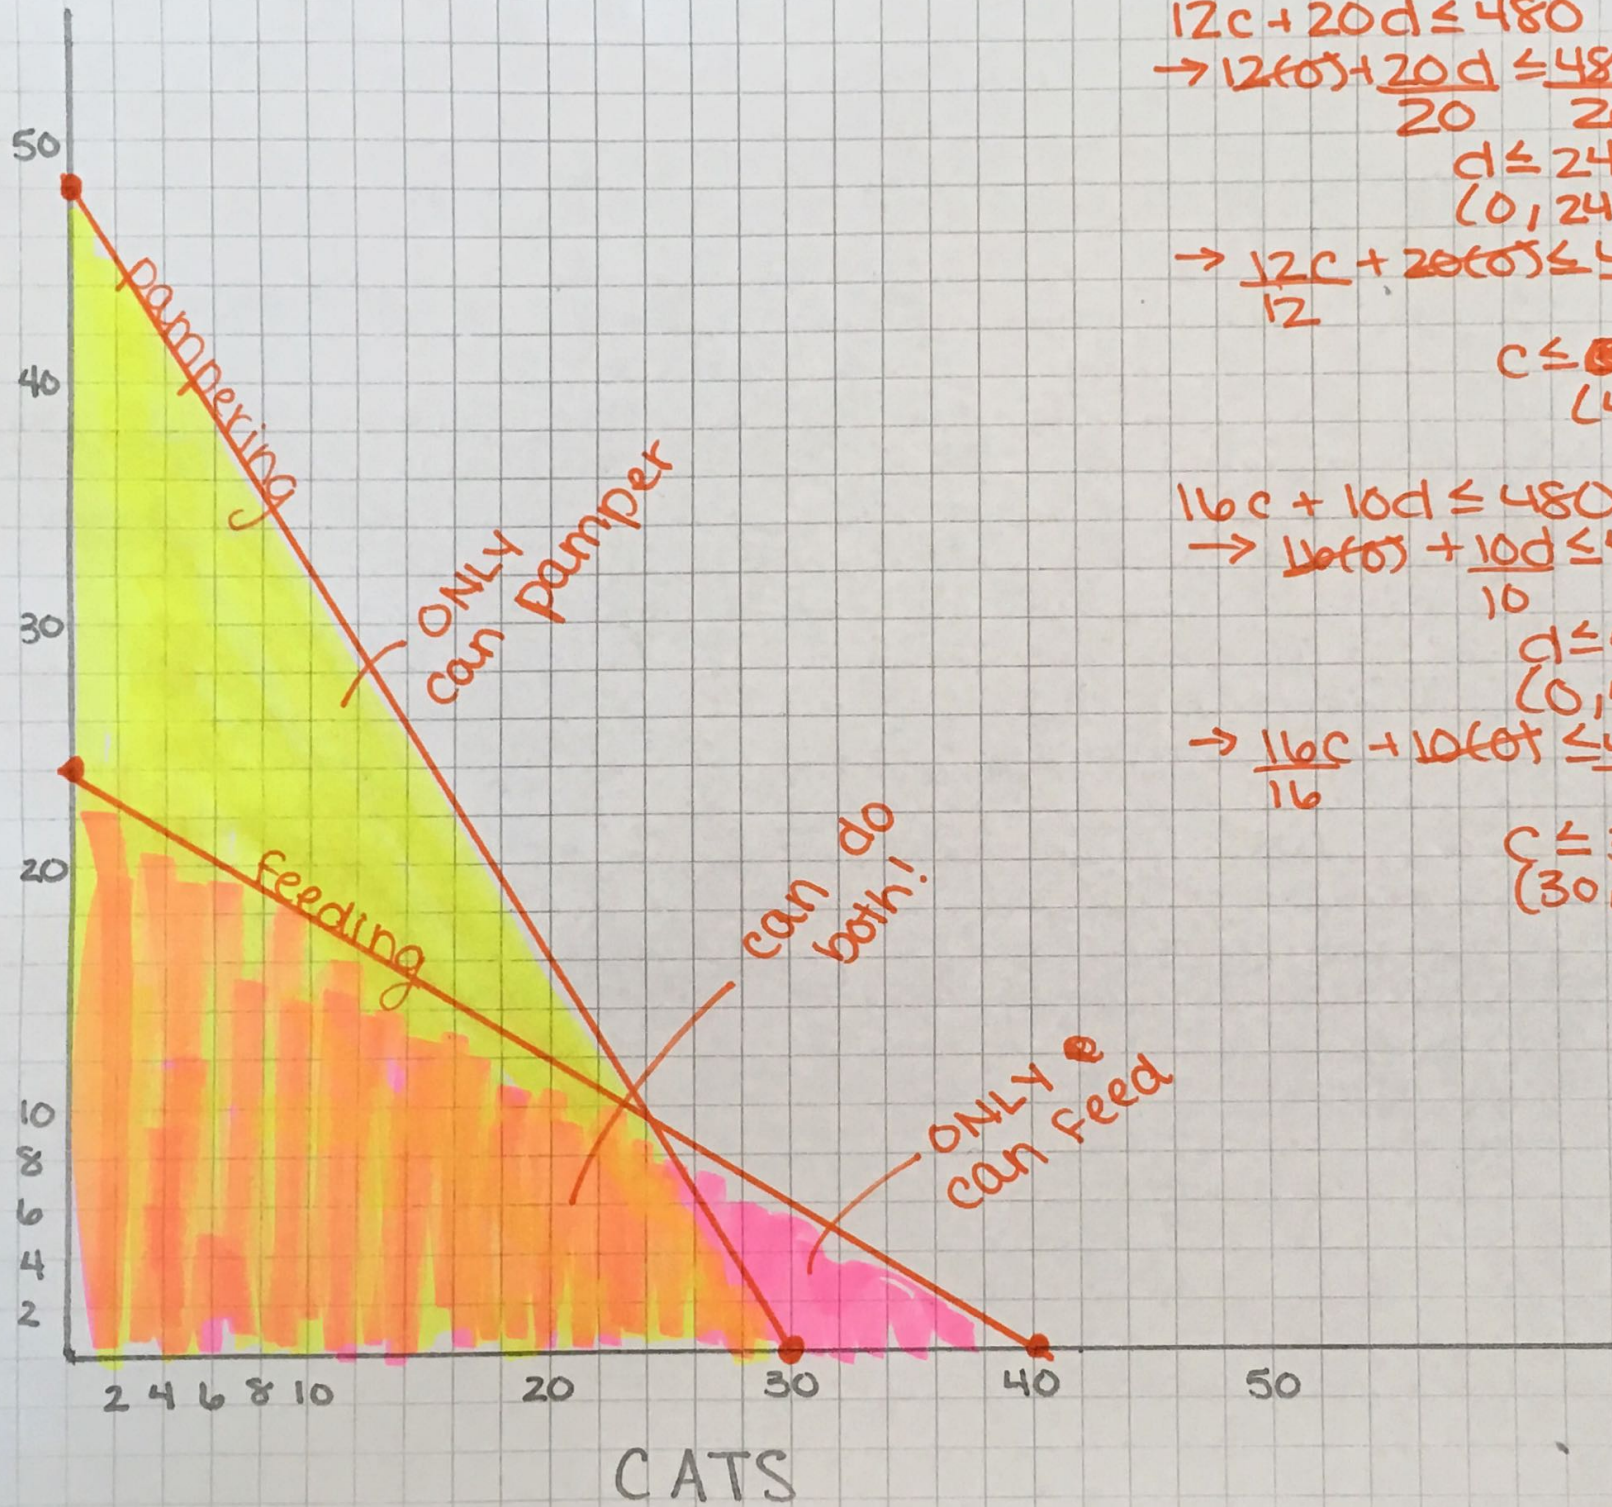 50
40
30
20
10
8
6
4
2
2 4 6 8 10 20 30 40 50
CATS
pampering
feeding
ONLY
can pamper
can do
both!
ONLY
can feed
12c + 20d ≤ 480
→ 12(0) + 20d ≤ 48
20 2
d ≤ 24
(0, 24
→ 12c + 20(0) ≤ 4
12
c ≤
(4
16c + 10d ≤ 480
→ 16(0) + 10d ≤
10
d ≤
(0,
→ 16c + 10(0) ≤
16
c ≤
(30